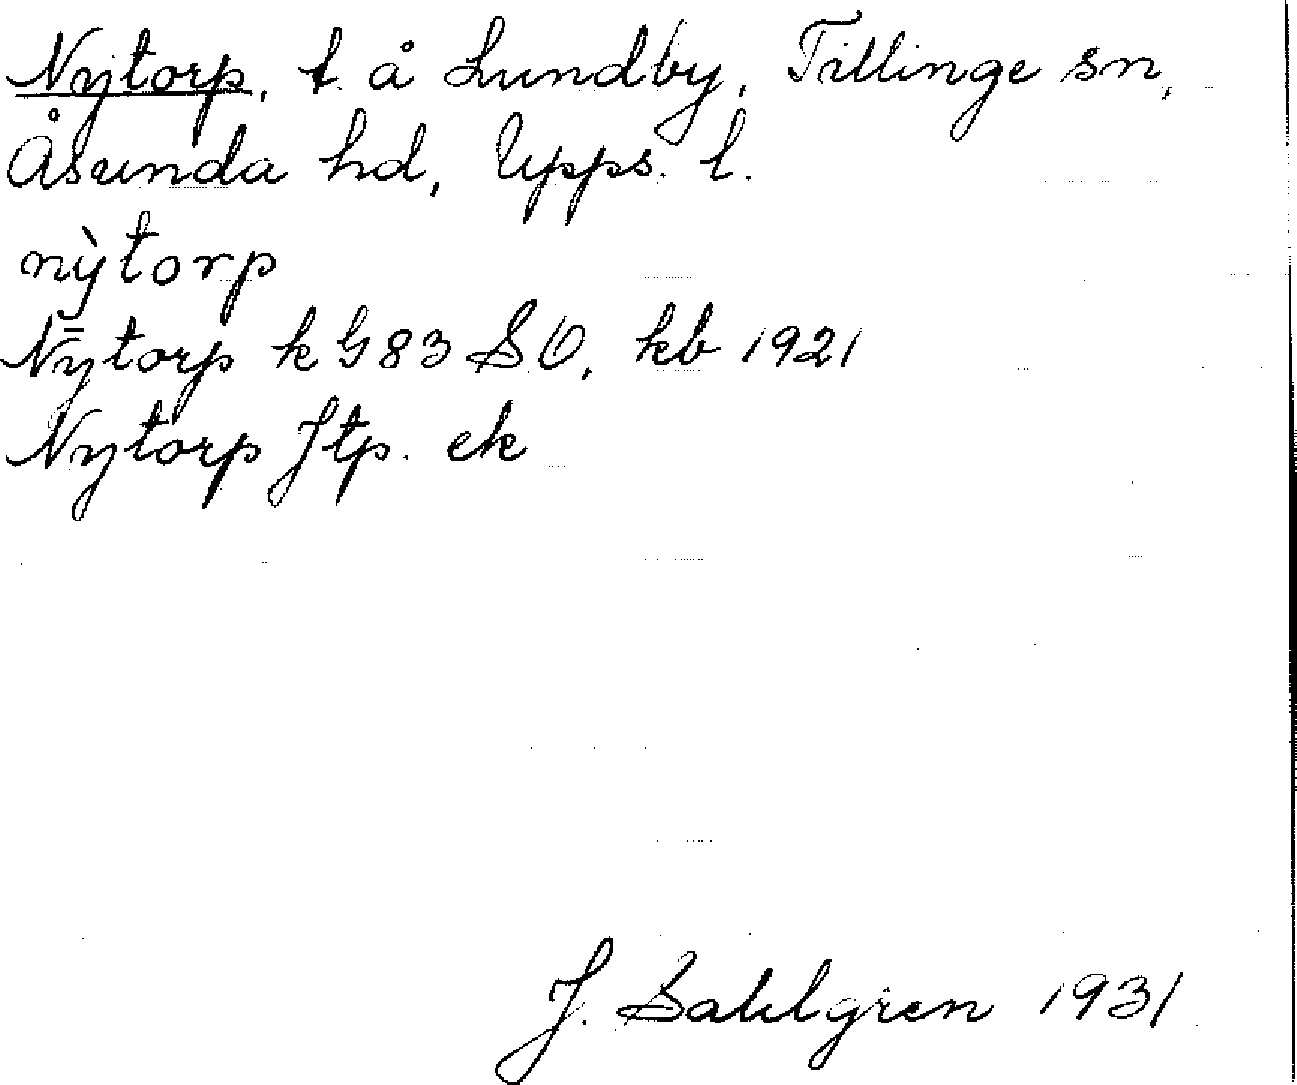 Nytorp, t. å Lundby, Tillinge sn,
Åsunda hd, Upps. l.
nỳtorp
Nȳtorp k G 83 SO, kb 1921
Nytorp Jtp. ek
J. Sahlgren 1931